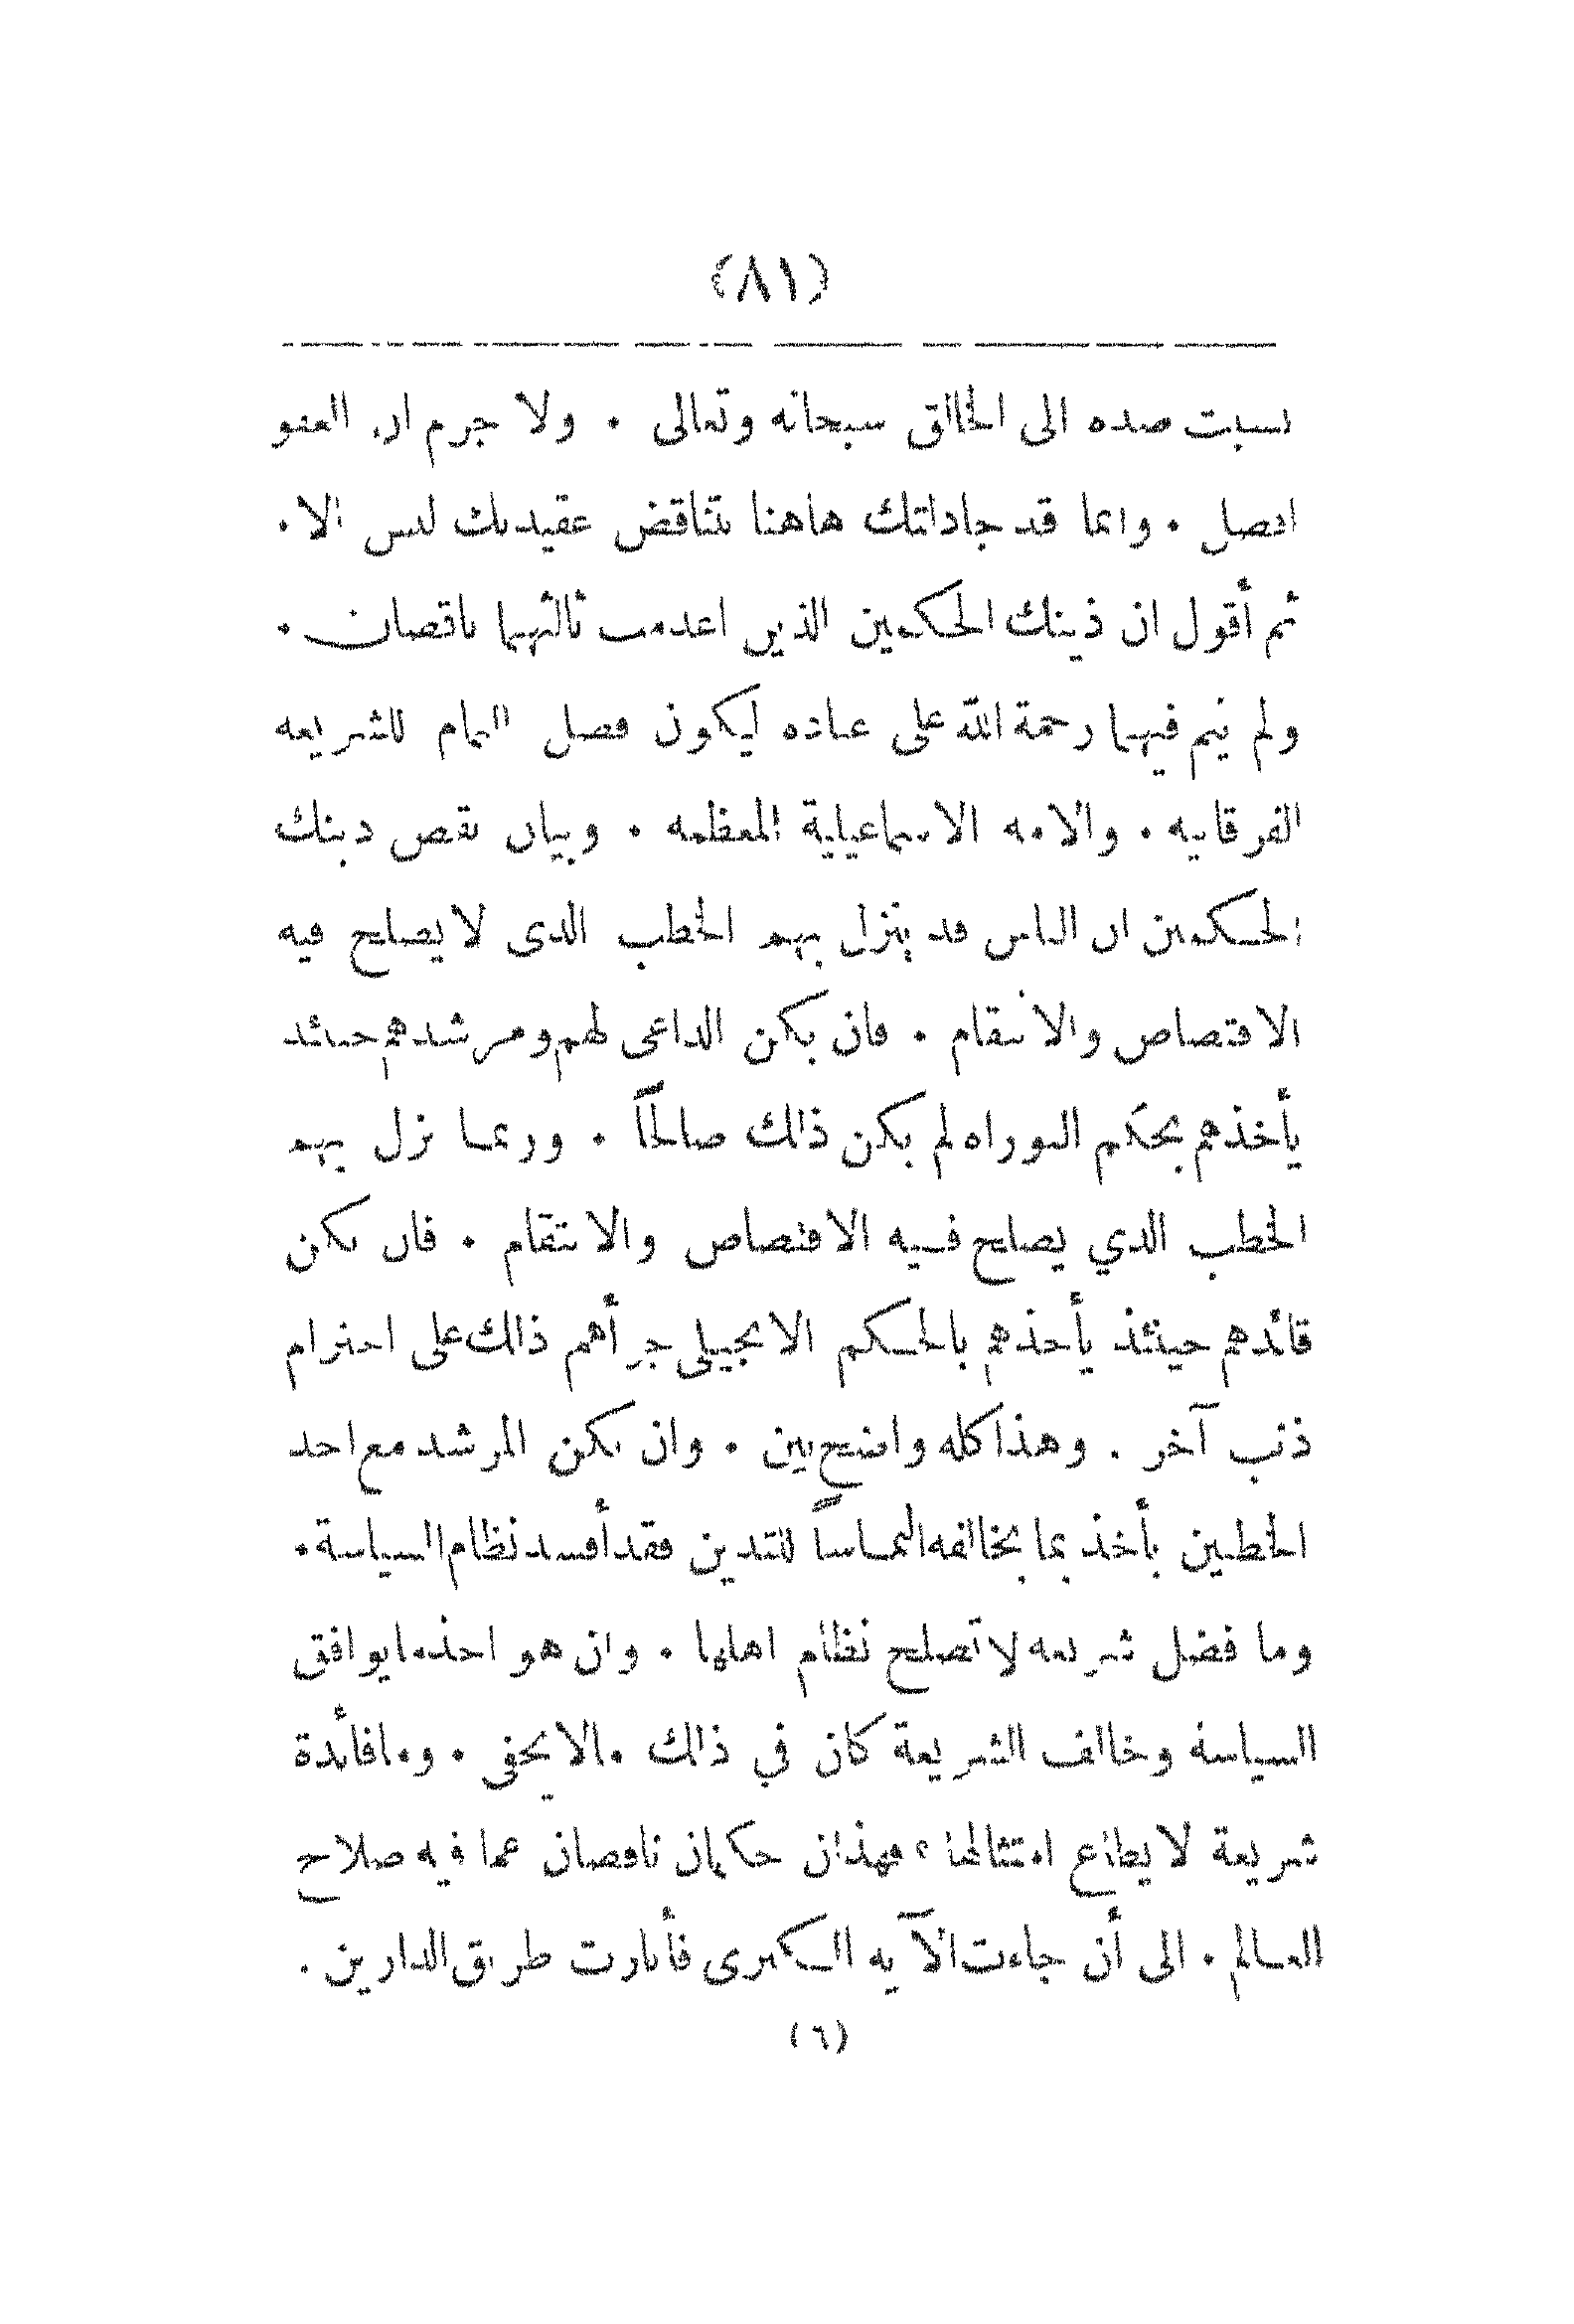 (٨١)
نسبت ضده الى الخالق سبحانه وتعالى . ولا جرم ان العفو
افضل . وانما قد جادلتك هاهنا بتناقض عقيدتك ليس الا .
ثم أقول ان ذينك الحكمين الذين اعدمت ثالثهما ناقصان .
ولم يتم فيهما رحمة الله على عباده ليكون فضل التمام للشريعة
الفرقانية . والامة الاسماعيلية المعظمة . وبيان نقص ذينك
الحكمين ان الناس قد ينزل بهم الخطب الذي لا يصلح فيه
الاقتصاص والانتقام . فان يكن الداعى لهم ومرشدهم حينئذ
يأخذهم بحكم التوراه لم يكن ذلك صالحاً . وربما نزل بهم
الخطب الذي يصلح فيه الاقتصاص والانتقام . فان يكن
قائدهم حينئذ يأخذهم بالحكم الانجيلى جرأهم ذلك على احترام
ذنب آخر . وهذا كله واضح بين . وان يكن المرشد مع احد
الخطبين يأخذ بما يخالفه التماساً للتدين فقد أفسد نظام السياسة .
وما فضل شريعة لا تصلح نظام اهلها . وان هو اخذ ما يوافق
السياسة وخالف الشريعة كان في ذلك مالا يخفى . وما فائدة
شريعة لا يطاع امتثالها ؟ فهذان حكمان ناقصان عما فيه صلاح
العالم . الى أن جاءت الآية الكبرى فأنارت طريق الدارين .
(٦)